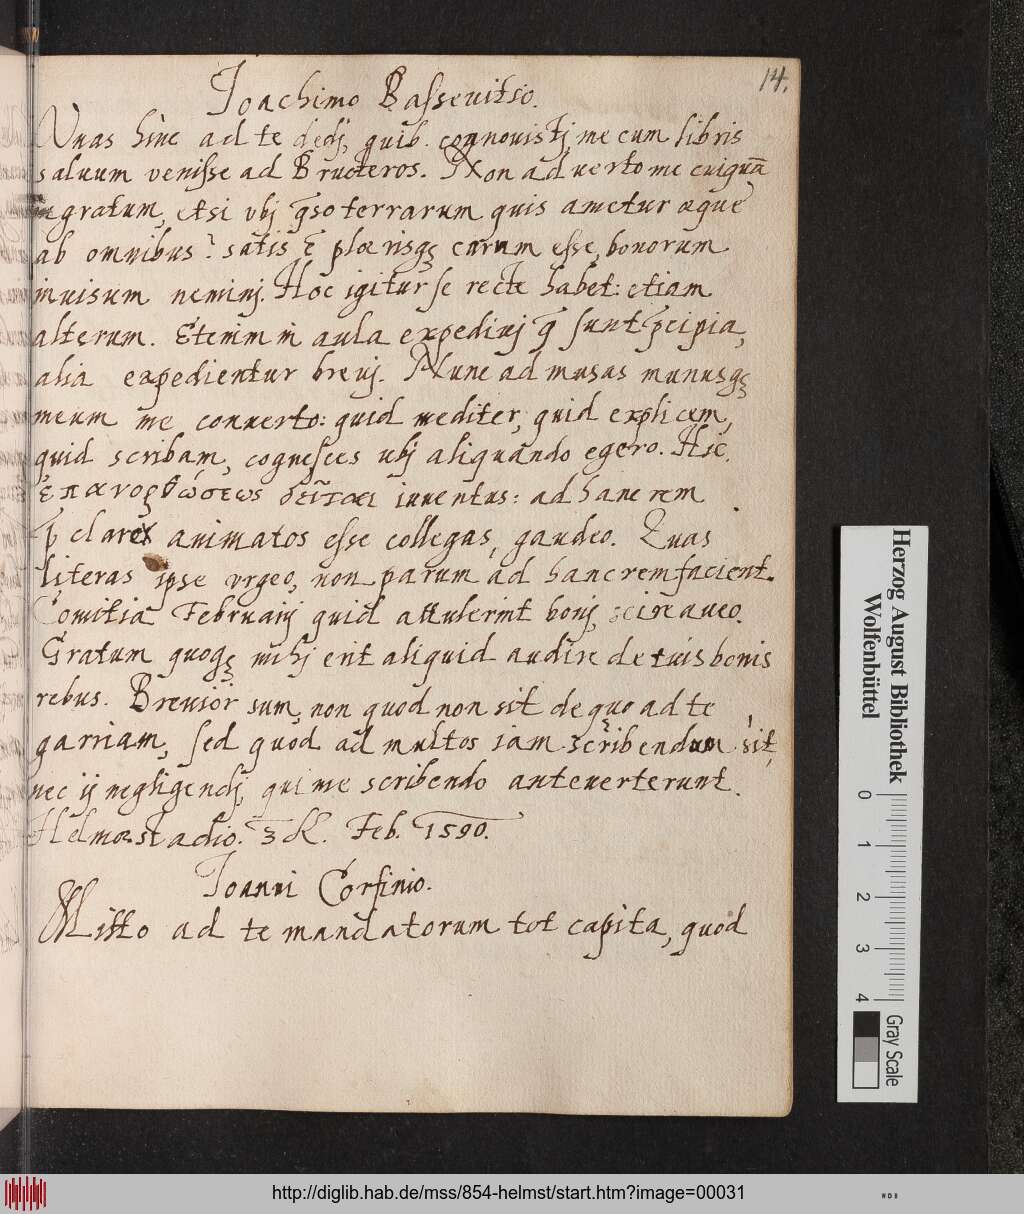 14.
Joachimo Bassevitsio.
Unas hinc ad te dedj, quib. cognovistj me cum libris
salvum venisse ad Bructeros. Non adverto me cuiquā
ingratum, etsi vbj q̄so terrarum quis ametur æque
ab omnibus? satis ē plærisqȝ earum esse, bonorum
invisum neminj. Hoc igitur se recte habet: etiam
alterum. Etenim in aula expedivj q̄ sunt p̄cipia,
alia expedientur brevj. Nunc ad musas munusqȝ
meum me converto: quid mediter, quid explicem,
quid scribam, cognosces ubj aliquando egero. Hic
ἐπανορθώσεως δεῖται iuventus: ad hanc rem
p̄clare animatos esse collegas, gaudeo. Quas
literas ipse vrgeo, non parum ad hanc rem facient.
Comitia Februarij quid attulerint bonj, scire aveo.
Gratum quoqȝ mihj erit aliquid audire de tuis bonis
rebus. Brevior sum, non quod non sit de quo ad te
garriam, sed quod ad multos iam scribendum sit,
nec ij negligendj, qui me scribendo anteverterunt.
Helmæstadio. 3 K. Feb. 1590.
Joanni Corfinio.
Mitto ad te mandatorum tot capita, quod
Herzog August Bibliothek
Wolfenbüttel
0 1 2 3 4
Gray Scale
http://diglib.hab.de/mss/854-helmst/start.htm?image=00031
WDB